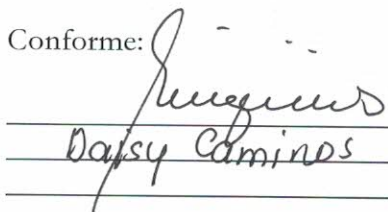 Conforme:
Daisy Caminos